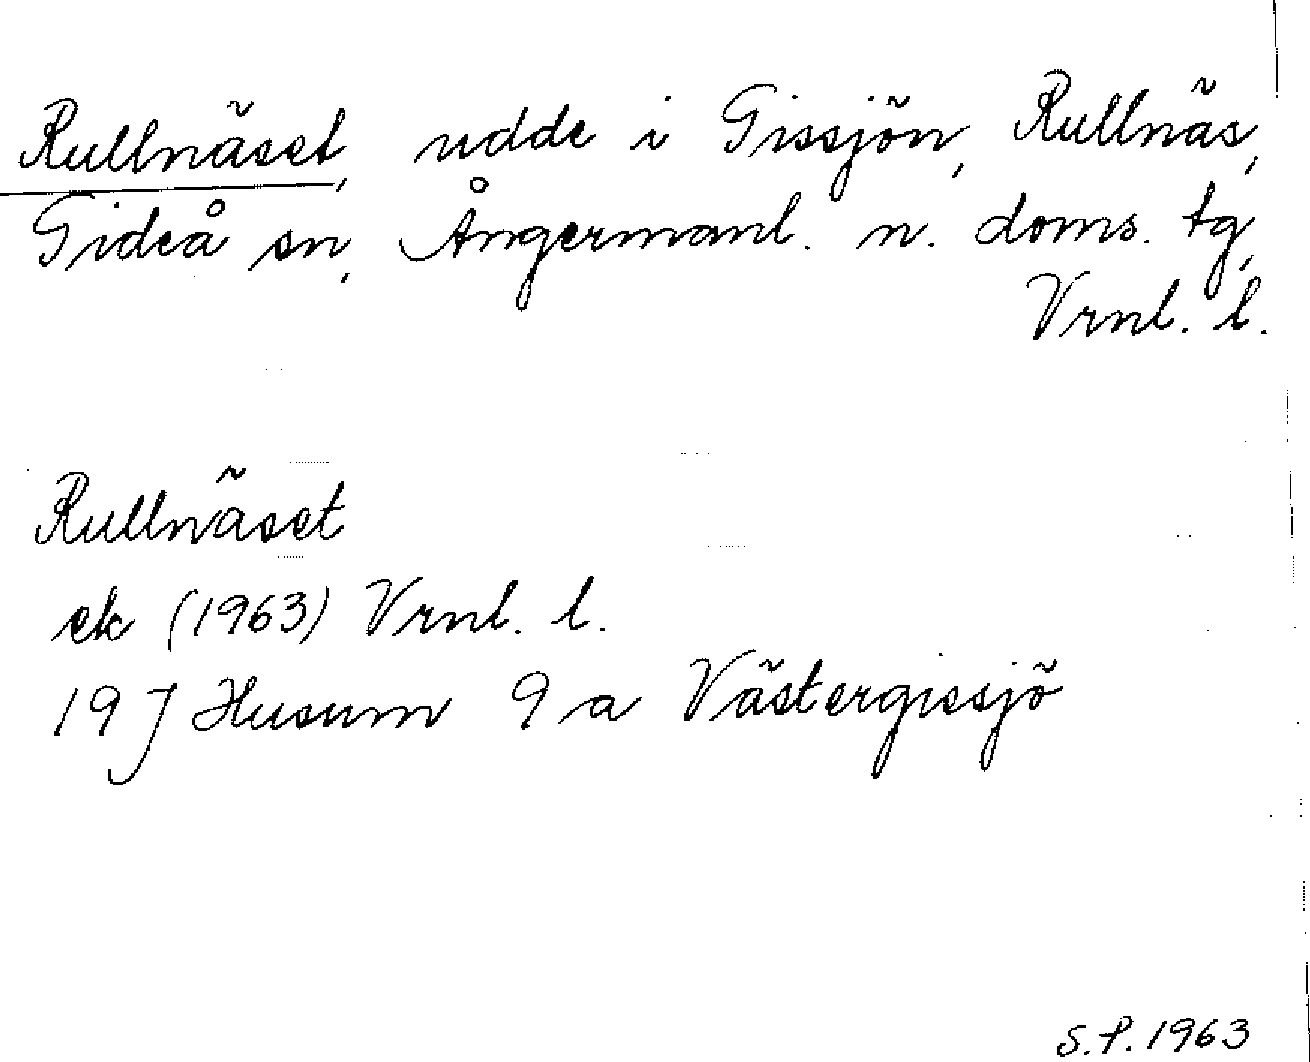 Rullnäset, udde i Gissjön, Rullnäs,
Gideå sn, Ångermanl. n. doms. tg,
Vrnl. l.
Rullnäset
ek (1963) Vrnl. l.
19 J Husum 9 a Västergissjö
S.P. 1963